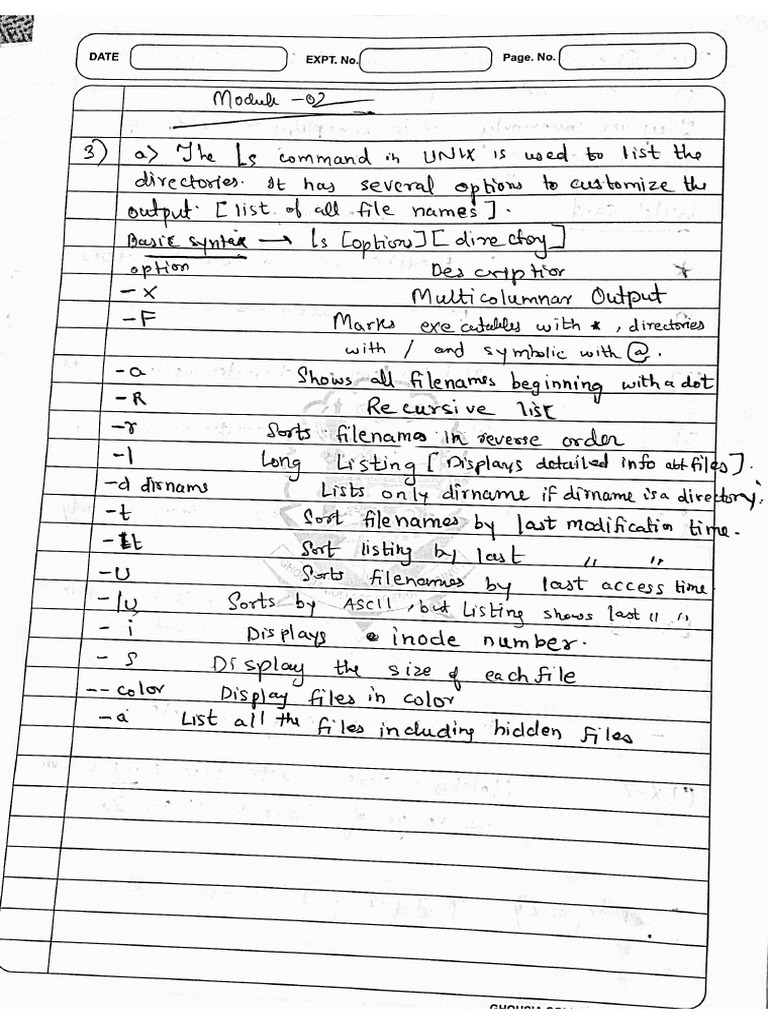 DATE EXPT. No. Page. No.
Module -02
3) a) The Ls command in UNIX is used to list the
directories. It has several options to customize the
output. [list of all file names].
Basic syntax → ls [options][directory]
option Description *
-x Multicolumnar Output
-F Marks executables with *, directories
with / and symbolic with @.
-a Shows all filenames beginning with a dot
-R Recursive list
-r Sorts filenames in reverse order
-l Long Listing [Displays detailed info abt files].
-d dirname Lists only dirname if dirname is a directory.
-t Sort filenames by last modification time.
-lt Sort listing by last " "
-u Sorts filenames by last access time.
-lu Sorts by ASCII, but Listing shows last " "
-i Displays inode number.
-s Display the size of each file
--color Display files in color
-a List all the files including hidden files